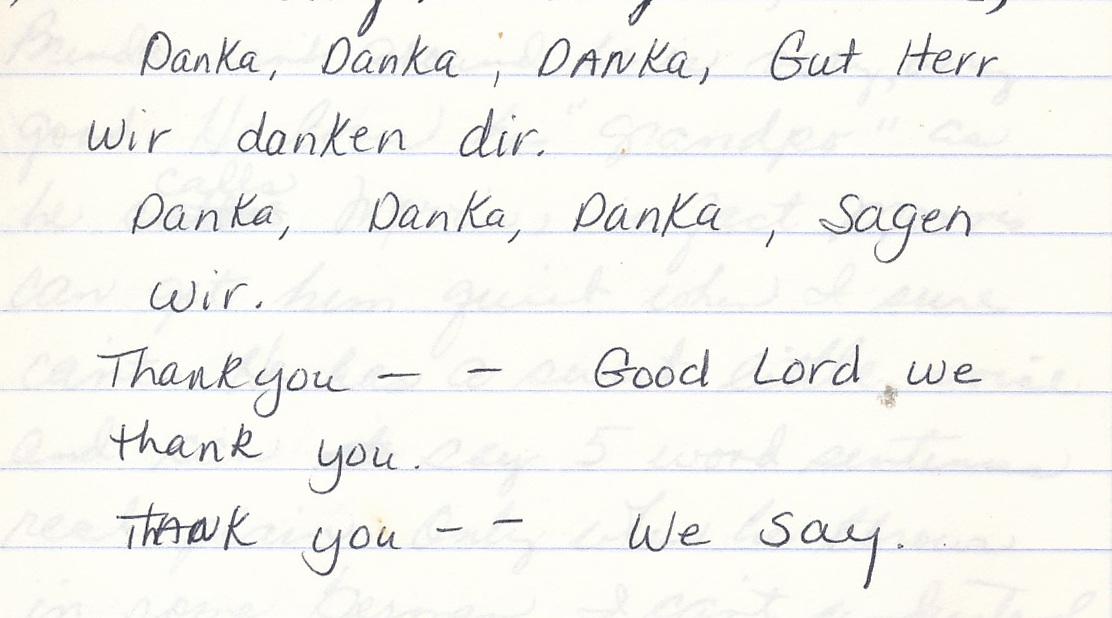 Danka, Danka, DANKa, Gut Herr
wir danken dir.
Danka, Danka, Danka, Sagen
wir.
Thank you — — Good Lord we
thank you.
Thank you — — We say.